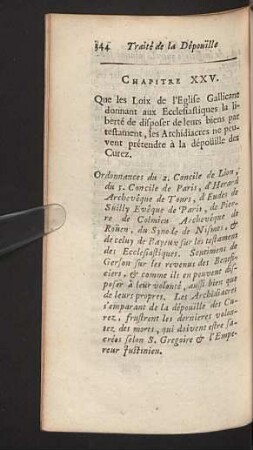 344 Traité de la Dépoüille
CHAPITRE XXV.
Que les Loix de l'Eglise Gallicane
donnant aux Ecclesiastiques la li-
berté de disposer de leurs biens par
testament, les Archidiacres ne peu-
vent prétendre à la dépoüille des
Curez.
Ordonnances du 2. Concile de Lion,
du 5. Concile de Paris, d'Herard
Archevêque de Tours, d'Eudes de
Suilly Evêque de Paris, de Pier-
re de Colmieu Archevêque de
Roüen, du Synode de Nismes, &
de celuy de Bayeux sur les testamens
des Ecclesiastiques. Sentiment de
Gerson sur les revenus des Benefi-
ciers, & comme ils en peuvent dis-
poser à leur volonté, aussi bien que
de leurs propres. Les Archidiacres
s'emparant de la dépoüille des Cu-
rez, frustrent les dernieres volon-
tez des morts, qui doivent estre sa-
crées selon S. Gregoire & l'Empe-
reur Justinien.